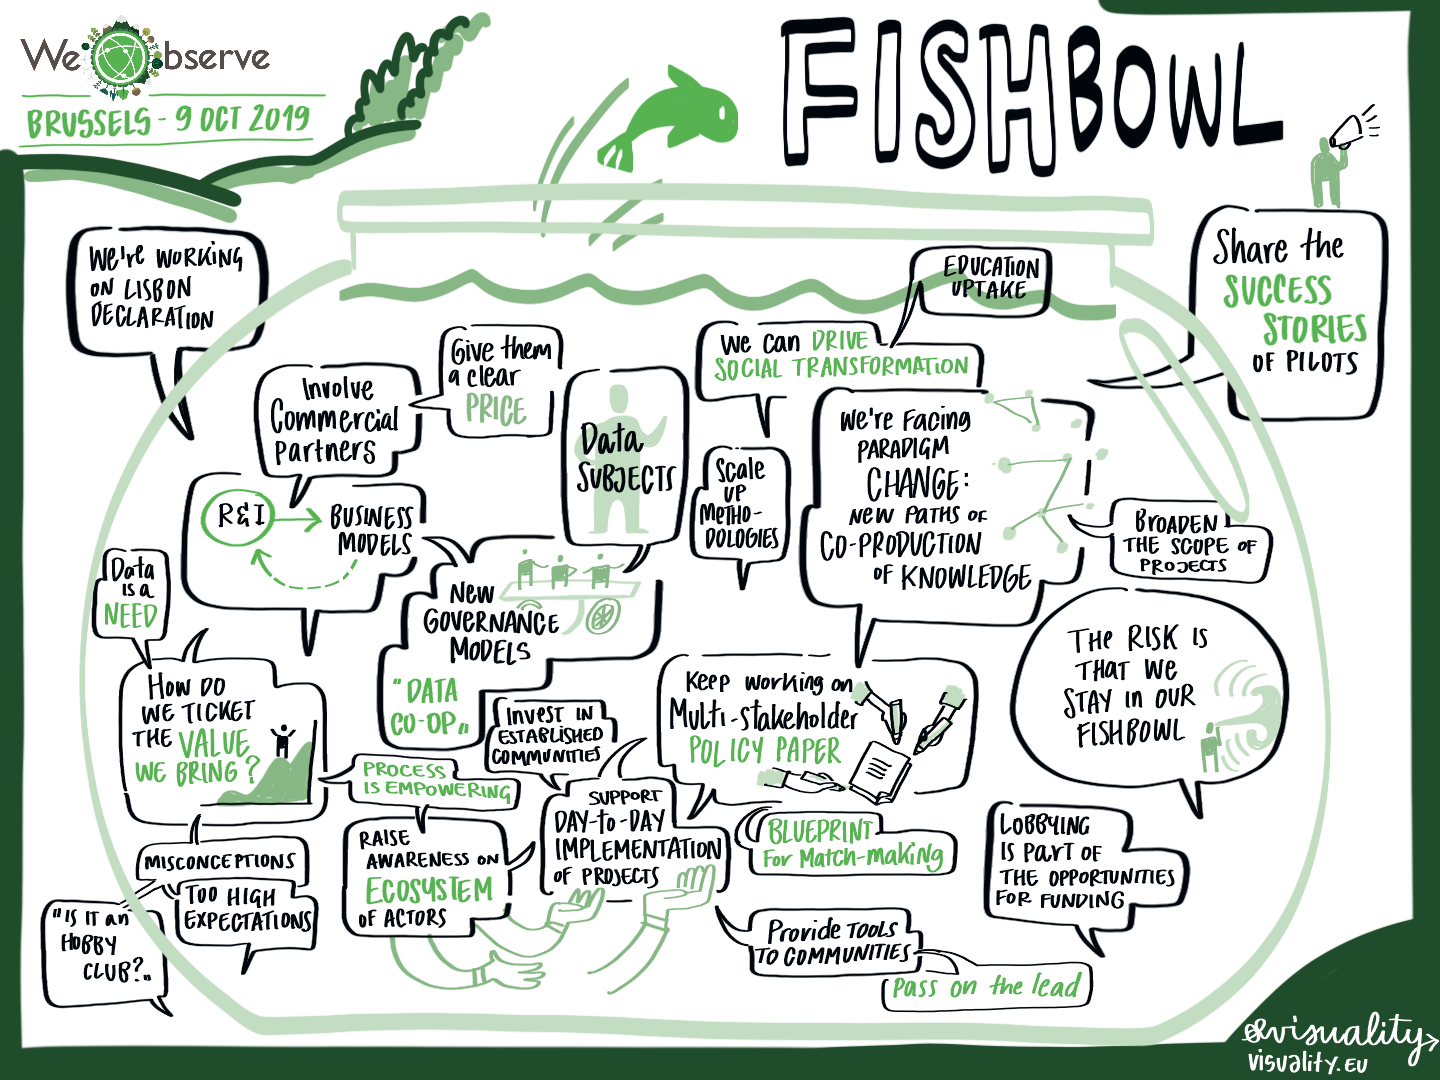 We bserve
BRUSSELS - 9 OCT 2019
FISHBOWL
We're WORKING
ON LISBON
DECLARATION
Share the
SUCCESS
STORIES
OF PILOTS
EDUCATION
UPTAKE
We can DRIVE
SOCIAL TRANSFORMATION
Give them
a clear
PRICE
Involve
Commercial
Partners
Data
SUBJECTS
Scale
UP
METHO-
DOLOGIES
We're Facing
PARADIGM
CHANGE:
NEW PATHS OF
CO-PRODUCTION
OF KNOWLEDGE
BROADEN
THE SCOPE OF
PROJECTS
R&I
BUSINESS
MODELS
Data
is a
NEED
NEW
GOVERNANCE
MODELS
"DATA
CO-OP"
THE RISK IS
THAT WE
STAY IN OUR
FISHBOWL
HOW DO
WE TICKET
THE VALUE
WE BRING?
INVEST IN
ESTABLISHED
COMMUNITIES
Keep working on
Multi-stakeholder
POLICY PAPER
PROCESS
IS EMPOWERING
SUPPORT
DAY-to-DAY
IMPLEMENTATION
OF PROJECTS
BLUEPRINT
For Match-making
LOBBYING
IS PART OF
THE OPPORTUNITIES
FOR FUNDING
RAISE
AWARENESS ON
ECOSYSTEM
OF ACTORS
MISCONCEPTIONS
TOO HIGH
EXPECTATIONS
"IS IT an
HOBBY
CLUB?"
Provide TOOLS
TO COMMUNITIES
Pass on the lead
visuality
visuality.eu